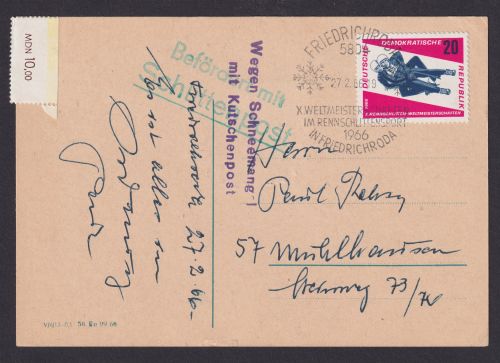 MDN 10,00
Befördert mit
Schlittenpost
Wegen Schneemangel
mit Kutschenpost
FRIEDRICHRODA
580
27.2.66-9
X. WELTMEISTERSCHAFTEN
IM RENNSCHLITTENSPORT
1966
IN FRIEDRICHRODA
DEUTSCHE DEMOKRATISCHE REPUBLIK
20
1966 X. RENNSCHLITTEN-WELTMEISTERSCHAFTEN
Friedrichroda 27.2.66
ist alles in
Ordnung
Herrn
Paul
57 Mühlhausen
73/74